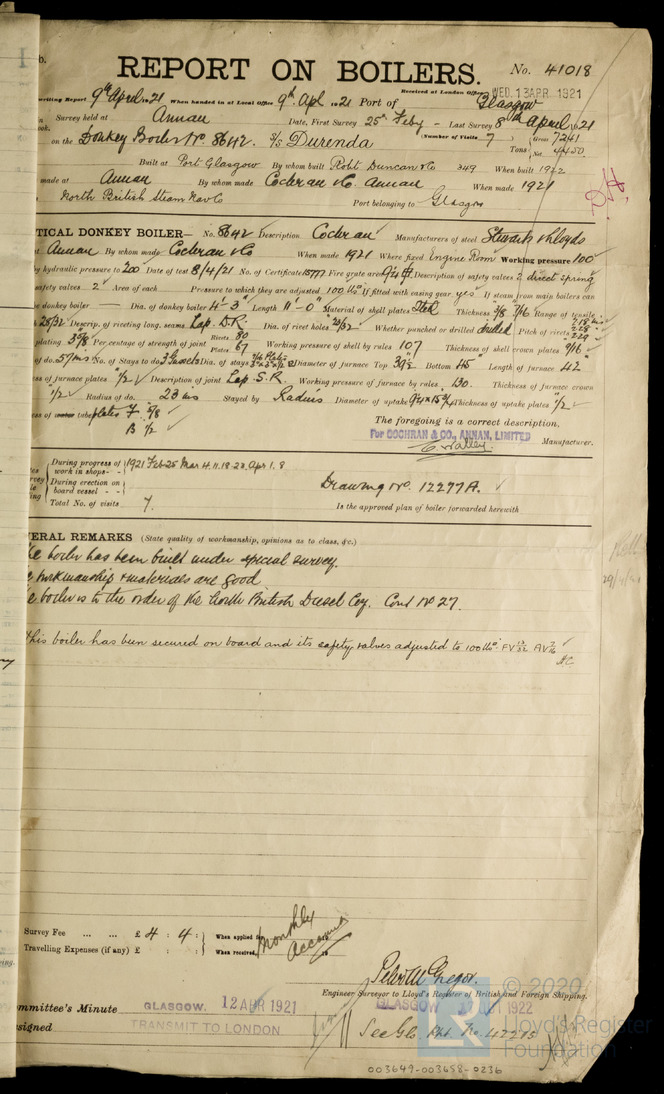 b.
REPORT ON BOILERS.
No. 41018
Received at London Office WED. 13 APR 1921
writing Report 9th April 1921 When handed in at Local Office 9th Apl 1921 Port of Glasgow
Survey held at Annan Date, First Survey 25th Feby Last Survey 8th April 1921
on the Donkey Boiler No. 8642. S/S Durenda (Number of Visits 7 Gross 7241
Tons Net 4450
Built at Port Glasgow By whom built Robt Duncan & Co 349 When built 1922
made at Annan By whom made Cochran & Co. Annan When made 1921
North British Steam Nav Co Port belonging to Glasgow
TICAL DONKEY BOILER— No. 8642 Description Cochran Manufacturers of steel Stewarts & Lloyds
Annan By whom made Cochran & Co When made 1921 Where fixed Engine Room Working pressure 100
by hydraulic pressure to 200 Date of test 8/4/21 No. of Certificate 15777 Fire grate area 9¼ ft Description of safety valves 2 direct spring
safety valves 2 Area of each Pressure to which they are adjusted 100 lbs If fitted with easing gear yes If steam from main boilers can
be donkey boiler Dia. of donkey boiler 4'-3" Length 11'-0" Material of shell plates Steel Thickness 3/8 7/16 Range of tensile
25/32 Descrip. of riveting long. seams Lap. D.R. Dia. of rivet holes 25/32 Whether punched or drilled drilled Pitch of rivets
plating 3⅝ Percentage of strength of joint Rivets 80 Plates 67 Working pressure of shell by rules 107 Thickness of shell crown plates 9/16
of do. 57 ins No. of Stays to do 3 Gussets Dia. of stays Diameter of furnace Top 39½ Bottom 45 Length of furnace 42"
ss of furnace plates 1/2 Description of joint Lap. S.R. Working pressure of furnace by rules 130. Thickness of furnace crown
1/2 Radius of do. 23 ins Stayed by Radius Diameter of uptake Thickness of uptake plates 1/2
ss of water tube plates F. 5/8
B 1/2
The foregoing is a correct description,
For COCHRAN & CO., ANNAN, LIMITED
Manufacturer.
During progress of work in shops - - 1921 Feb 25 Mar 4. 11. 18. 23. Apr 1. 8
During erection on board vessel - -
Total No. of visits 7.
Drawing No. 12277A.
Is the approved plan of boiler forwarded herewith
ERAL REMARKS (State quality of workmanship, opinions as to class, &c.)
he boiler has been built under special survey.
e workmanship & materials are good
e boiler is to the order of the North British Diesel Coy. Cont No 27.
This boiler has been secured on board and its safety valves adjusted to 100 lbs.
Survey Fee ... ... £ 4 : 4 : When applied for Monthly
Travelling Expenses (if any) £ : : When received, Account
Peter McGregor.
Engineer Surveyor to Lloyd's Register of British and Foreign Shipping.
ommittee's Minute GLASGOW. 12 APR 1921
signed TRANSMIT TO LONDON
GLASGOW 1922
See Gls. Rpt. No. 42215
© 2020
Lloyd's Register
Foundation
003649-003658-0236